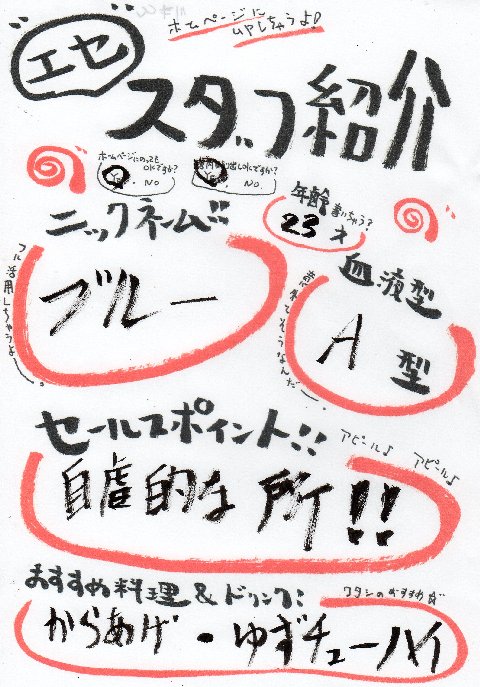 ホームページに
エセ
スタッフ紹介
ホームページにのってもOKですか?
Yes. No
Yes. No.
年齢 書いちゃう?
23才
ニックネーム!!
ブルー
フル活用しちゃうよ〜。
血液型
A型
セールスポイント!!
アピール♪ アピール♪
自虐的な所!!
おすすめ料理&ドリンク:
ワタシのおすすめ
からあげ・ゆずチューハイ